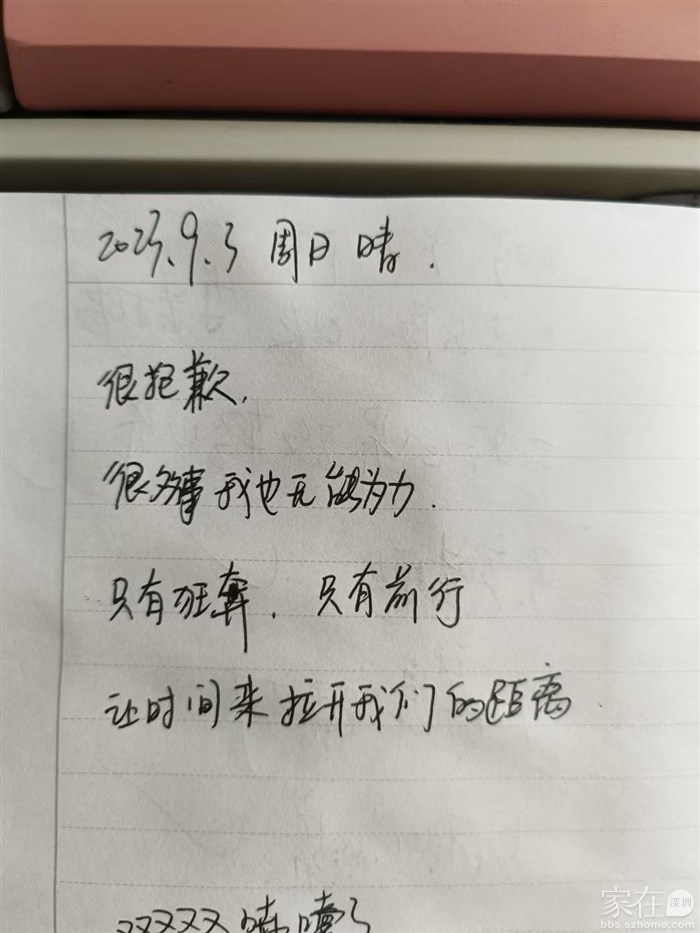 2023.9.3 周日 晴.
很抱歉.
很多事我也无能为力.
只有狂奔. 只有前行
让时间来拉开我们的距离
家在深圳
bbs.szhome.com